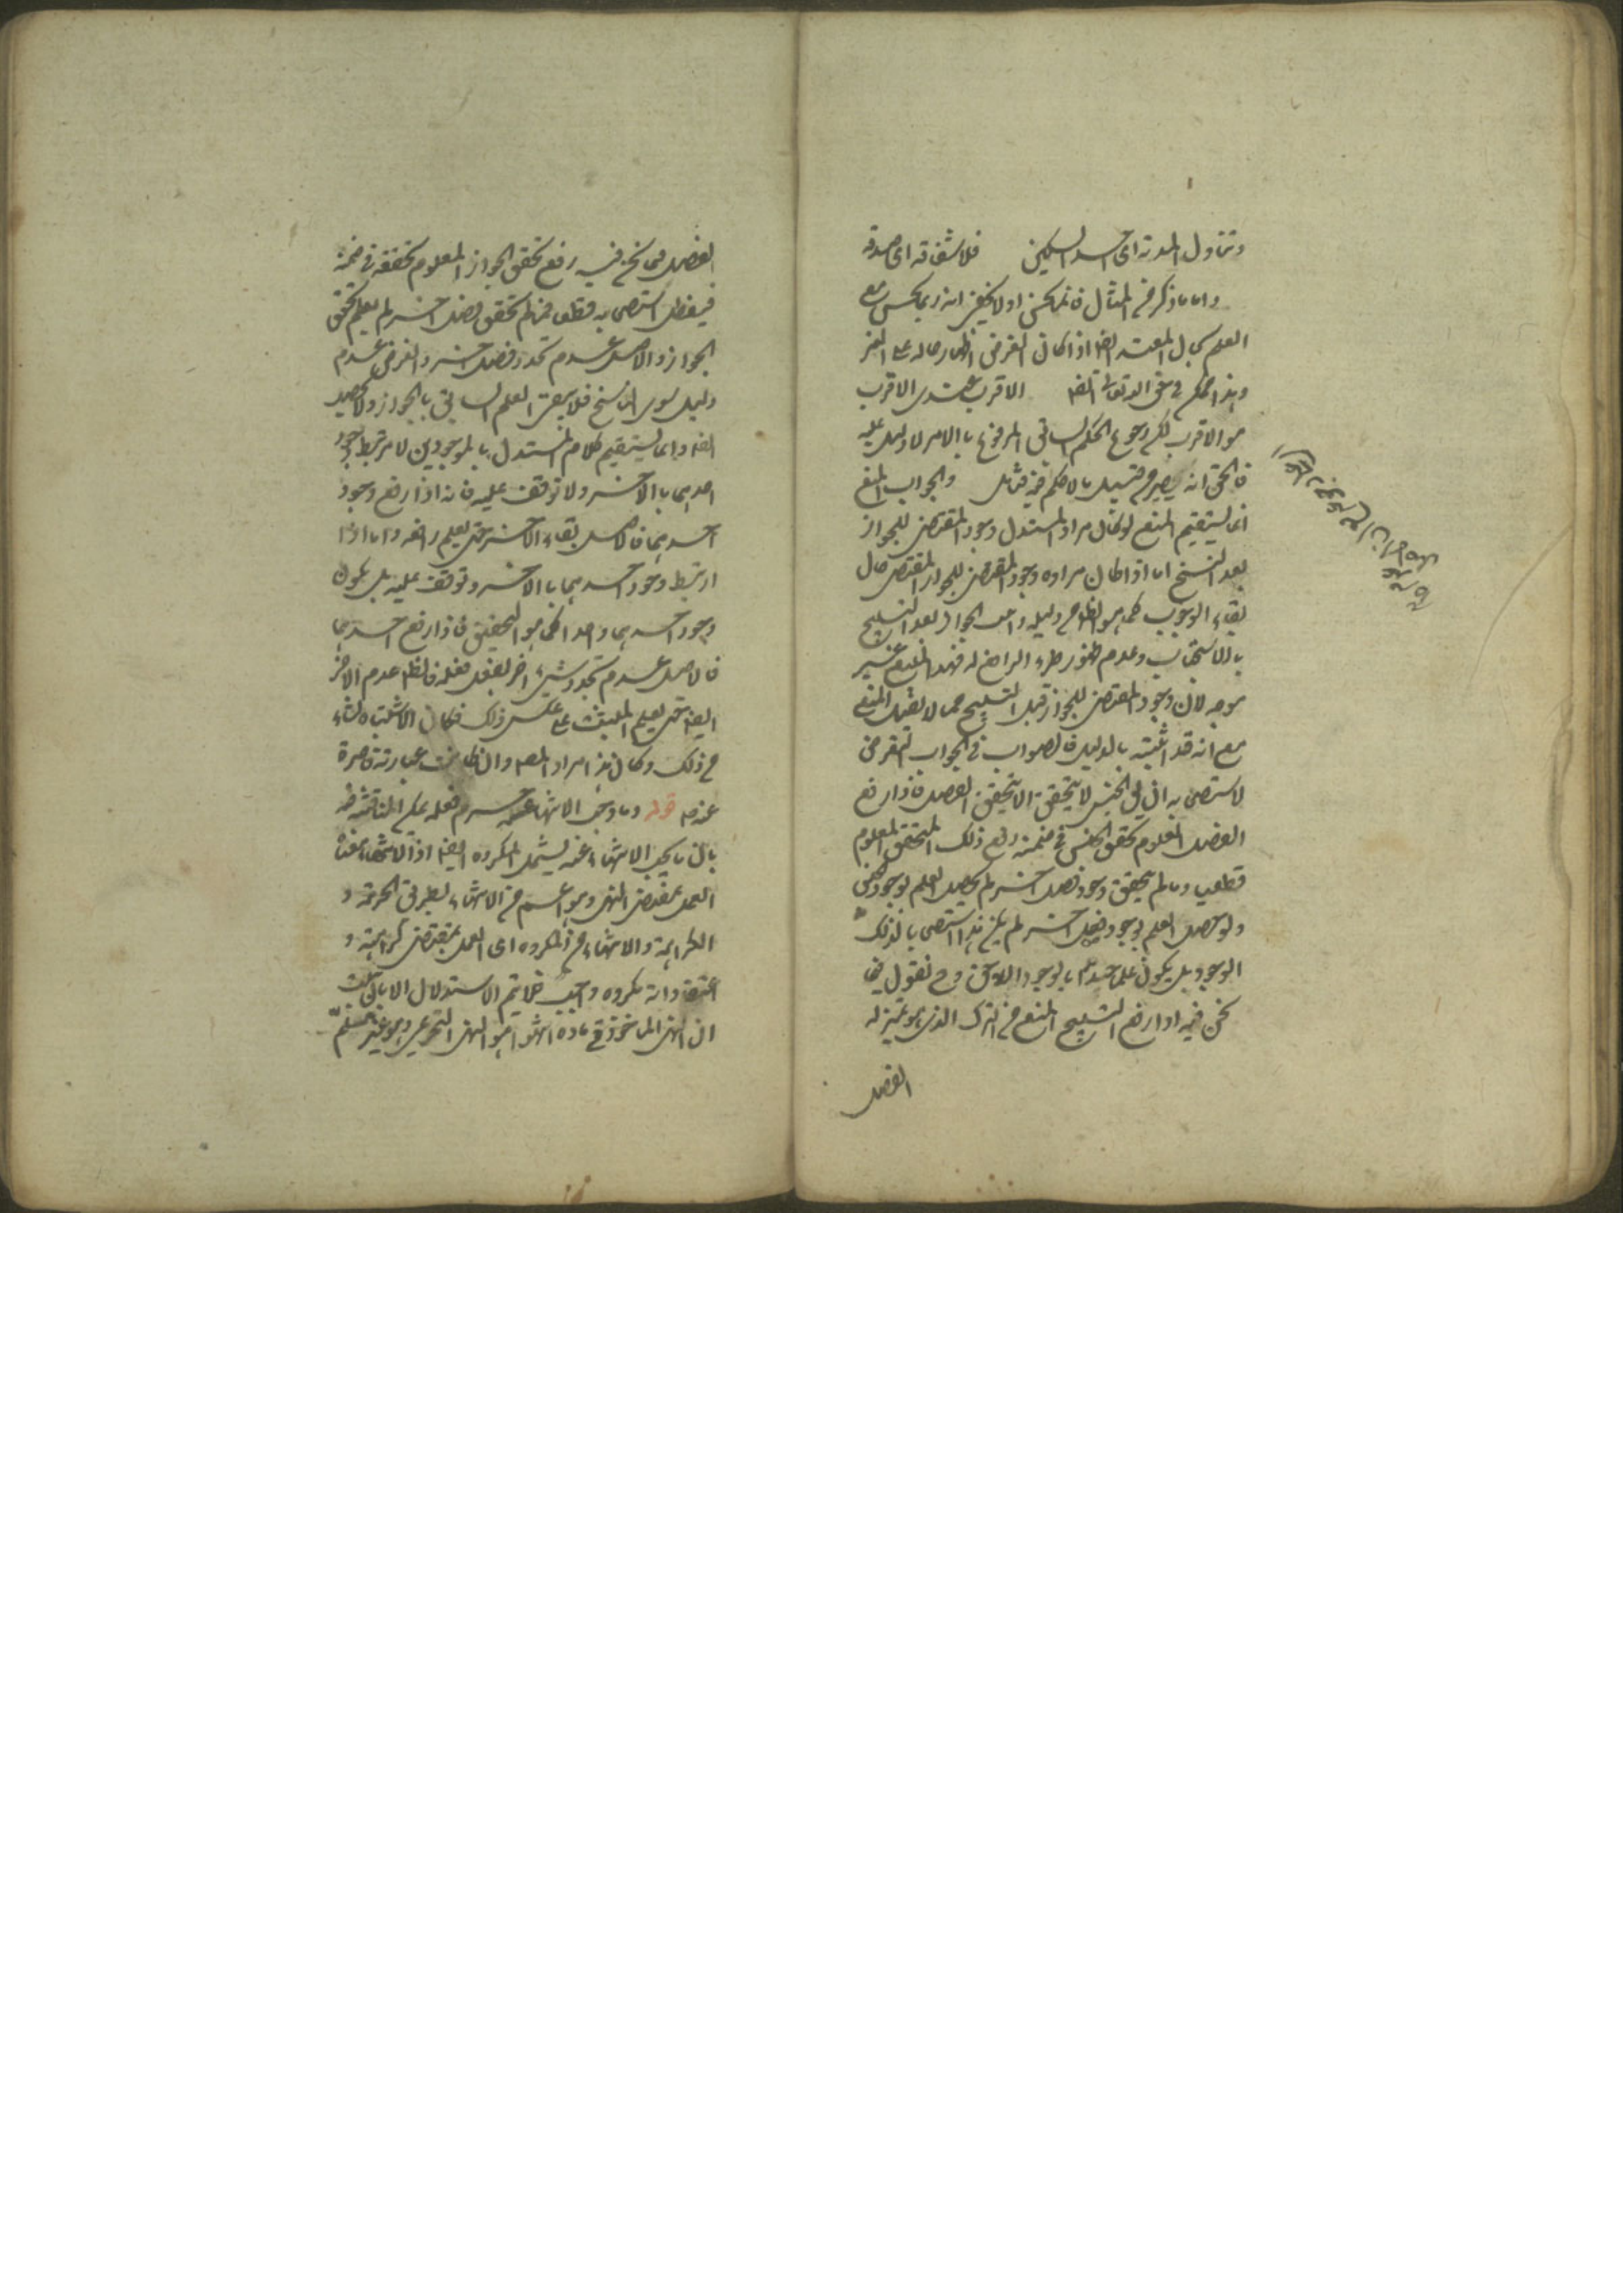 وتناول المدية اى احد السكين فلا شفاقه اى صدقه
واما ما ذكر من المثال فانما يحسن اولا يخفى انه ربما يحسن مع
العلم بحال المعتد ايضا اذا كان الغرض اظهار حاله على الغير
وهذا ممكن في حق الله تعالى ايضا الاقرب عندى الاقرب
هو الاقرب لكن رجوع الحكم السابق المرفوع بالامر لا دليل عليه
فالحق انه يصير من قبيل ما لا حكم فيه فتأمل والجواب المنع
انما يستقيم المنع لو كان مراد المستدل وجود المقتضى للجواز
بعد النسخ اما اذا كان مراده وجود المقتضى للجواز المقتضى حال
بقاء الوجوب كما هو الظاهر من دليله واثبت الجواز بعد النسخ
بالاستصحاب وعدم ظهور طرو الرافع له فهذا المنع غير
موجه لان وجود المقتضى للجواز قبل النسخ مما لا يقبل المنع
مع انه قد اثبته بالدليل فالصواب في الجواب التعرض
لاستصحابه ان يق الجنس لا يتحقق الا بتحقق الفصل فاذا رفع
الفصل المعلوم تحقق الجنس في ضمنه رفع ذلك المتحقق المعلوم
قطعا وما لم يتحقق وجود فصل اخر لم يحصل العلم بوجود الجنس
ولو حصل العلم بوجود فصل اخر لم يكن هذا استصحابا لذلك
الوجود بل يكون علما جديدا بالوجود اللاحق وح نقول فيما
نحن فيه اذا رفع الناسخ المنع من الترك الذى هو بمنزلة
الفصل
الفصل فيما نحن فيه رفع تحقق الجواز المعلوم تحققه في ضمنه
فيبطل استصحابه قطعا فما لم يتحقق فصل اخر لم يعلم تحقق
الجواز والاصل عدم تجدد فصل اخر والغرض عدم
دليل سوى الناسخ فلا يبقى العلم السابق بالجواز ولا يحصل
ايضا وانما يستقيم كلام المستدل بالموجودين لا مرتبط وجود
احدهما بالاخر ولا توقف عليه فانه اذا رفع وجود
احدهما فالاصل بقاء الاخر حتى يعلم رافعه واما اذا
ارتبط وجود احدهما بالاخر وتوقف عليه بل يكون
وجود احدهما واحدا كما هو التحقيق فاذا رفع احدهما
فالاصل عدم تجدد شئ اخر يفعل فعله فالظاهر عدم الاخر
ايضا حتى يعلم المثبت على عكس ذلك فكان الاشتباه نشاء
من ذلك وكان هذا مراد المصه وان كانت عبارته قاصرة
عنه قوله وما وجب الانتهاء عنه حرم فعله يمكن المناقشة
بان ما يجب الانتهاء عنه يشمل المكروه ايضا اذ الانتهاء بمعنى
العمل بمقتضى النهى وهو اعم من الانتهاء بطريق الحرمة و
الكراهة والانتهاء من المكروه اى العمل بمقتضى كراهته و
اعتقاد انه مكروه واجب فلا يتم الاستدلال الا بان يثبت
ان النهى الماخوذ في مادة انتهوا هو النهى التحريمى وهو غير مسلم